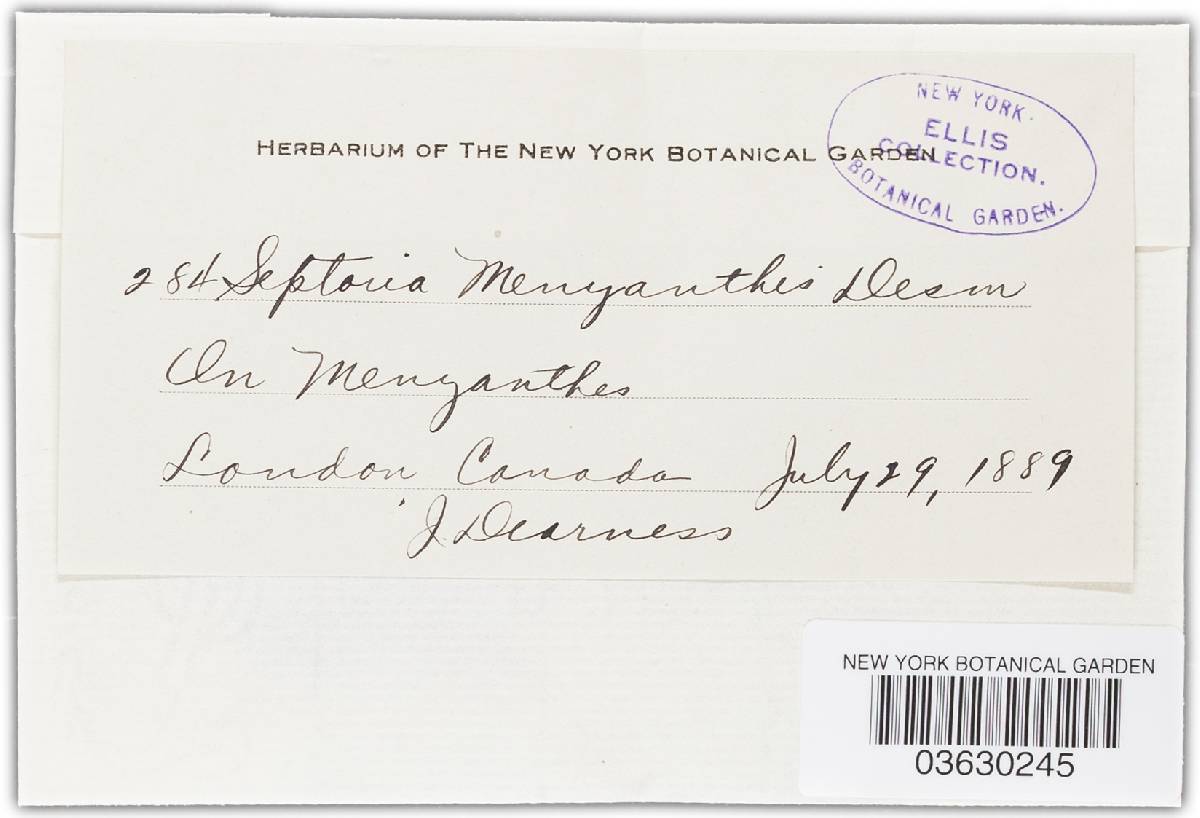 NEW YORK
ELLIS
COLLECTION.
BOTANICAL GARDEN.
HERBARIUM OF THE NEW YORK BOTANICAL GARDEN
284 Septoria Menyanthis Desm
On Menyanthes
London Canada July 29, 1889
J. Dearness
NEW YORK BOTANICAL GARDEN
03630245